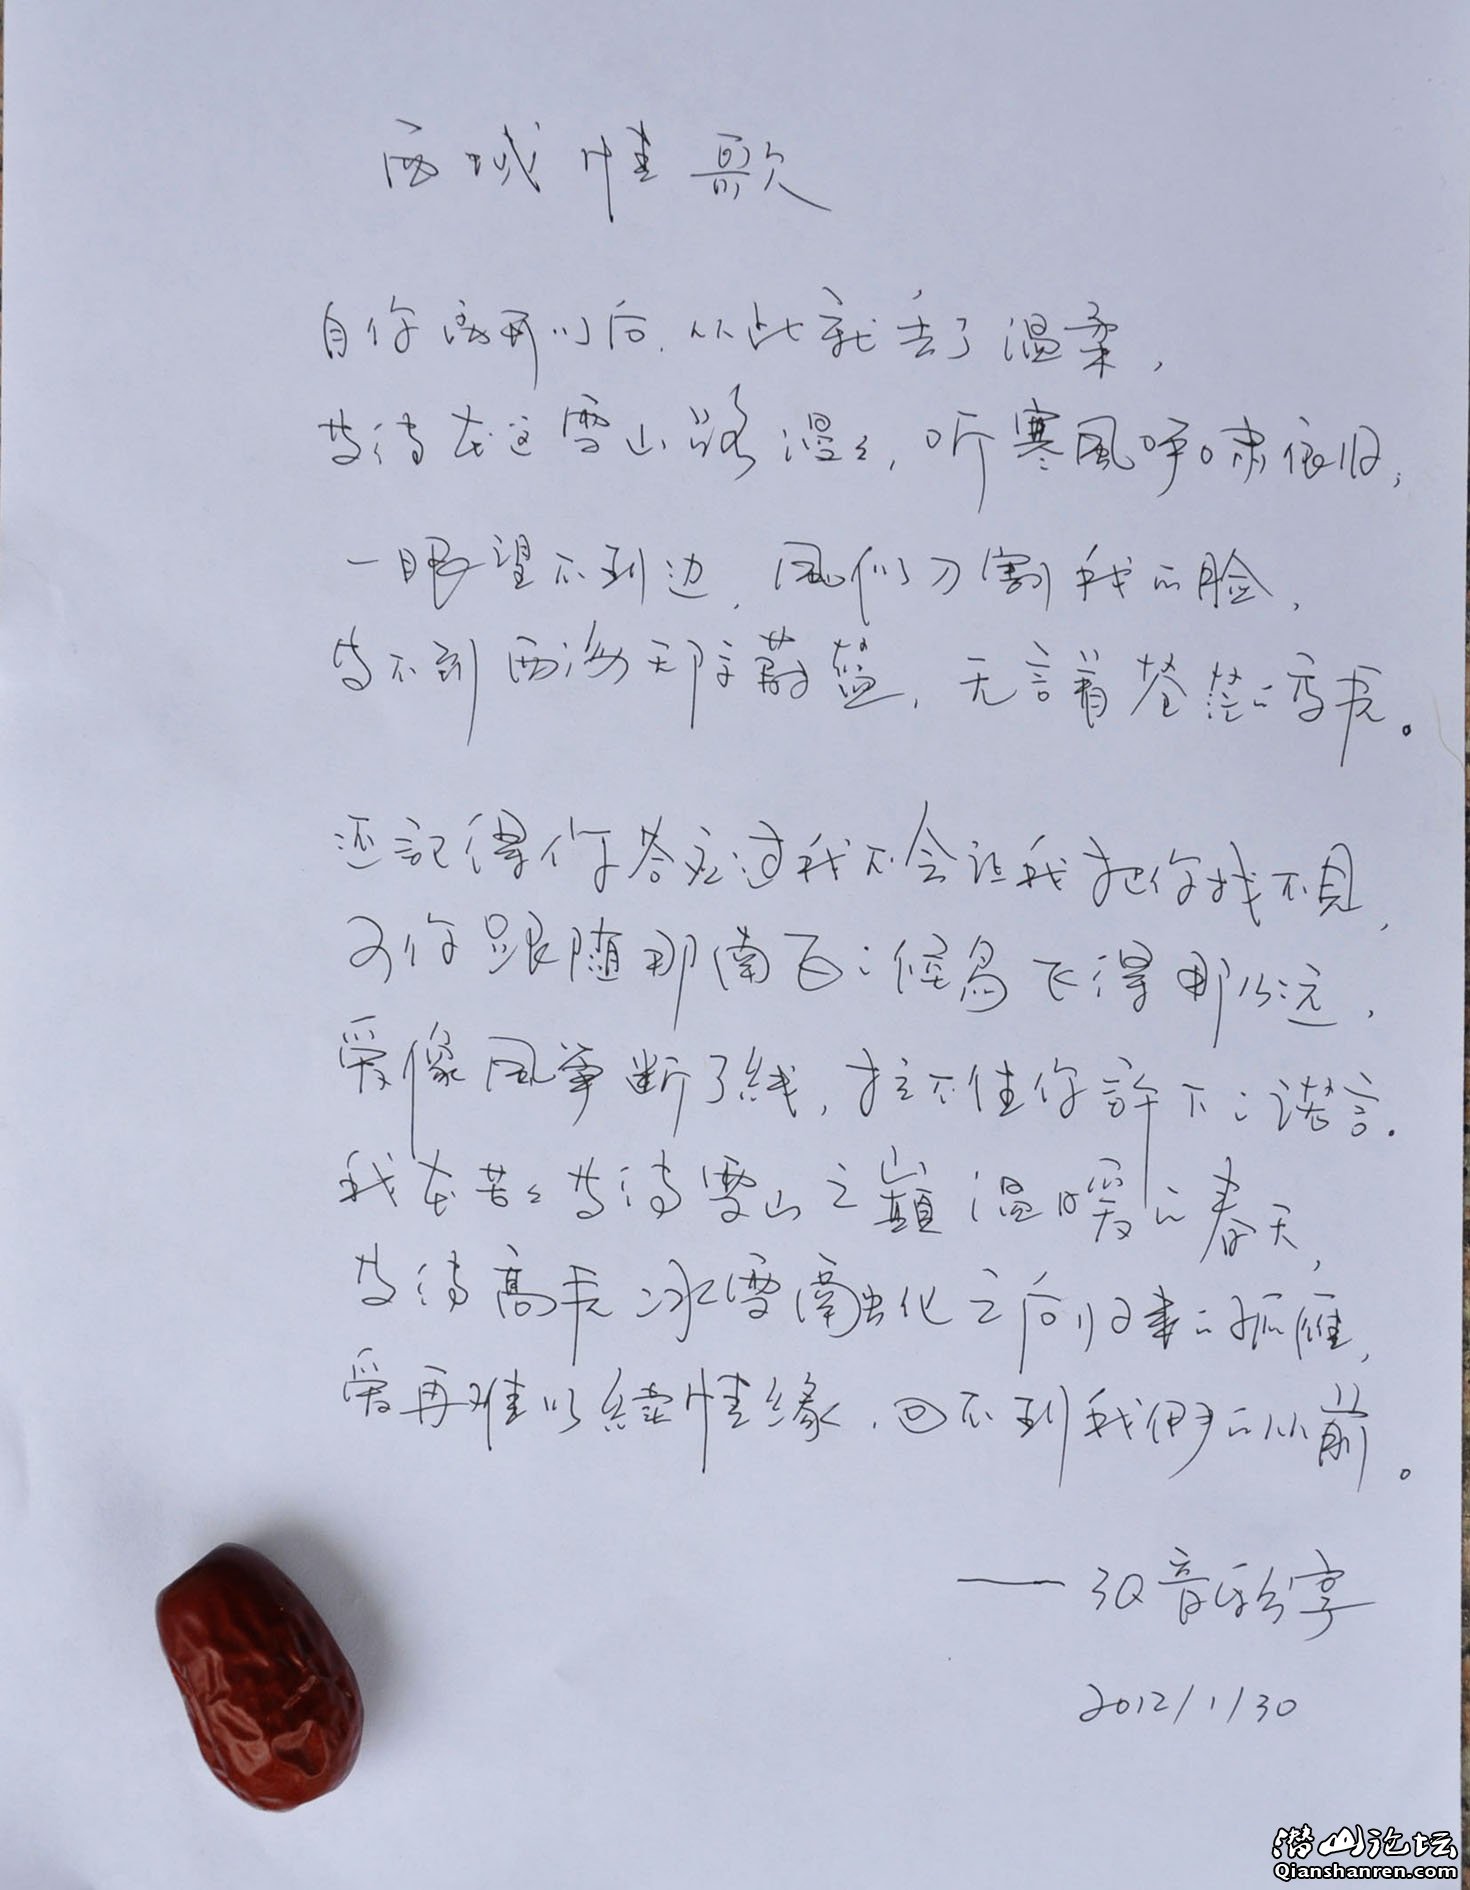 西域情歌
自你离开以后,从此就丢了温柔,
等待在这雪山路漫々,听寒風呼啸依旧,
一眼望不到边,風似刀割我的脸,
等不到西海天际蔚蓝,无言着苍茫的高原。
还記得你答应过我不会让我把你找不見,
可你跟随那南飞的候鸟飞得那么远,
爱像風筝断了線,拉不住你許下的諾言.
我在苦々等待雪山之巔温暖的春天,
等待高原冰雪融化之后归来的孤雁,
爱再难以續情緣,回不到我们的从前。
——3Q音乐分享
2012/1/30
潜山论坛
Qianshanren.com